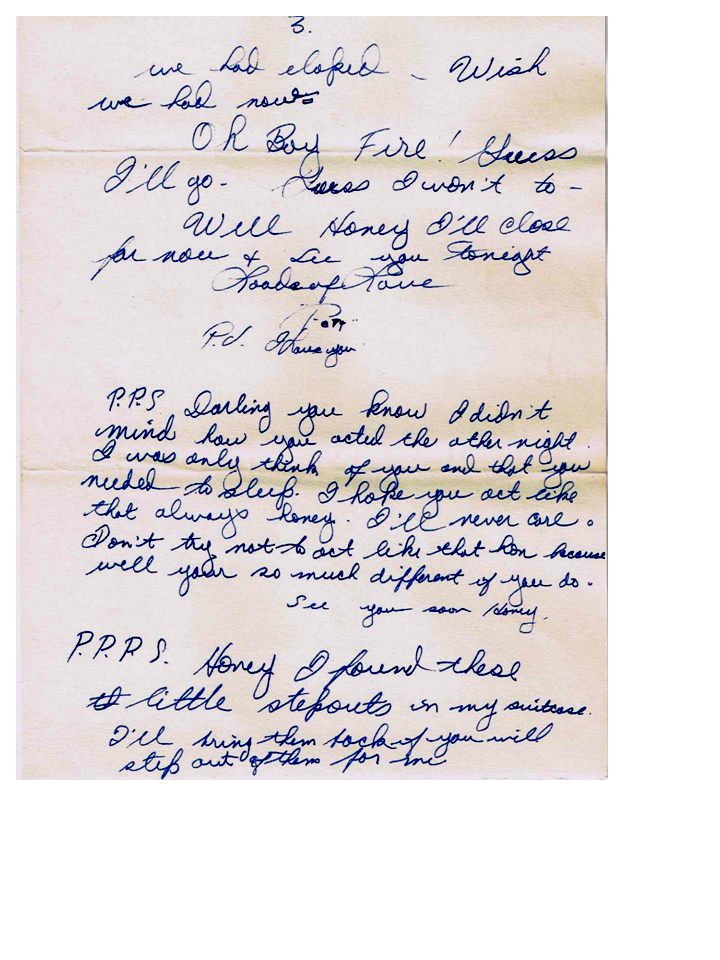 3.
we had eloped - Wish
we had now
Oh Boy Fire! Guess
I'll go - Guess I won't to -
Well Honey I'll close
for now & see you tonight
Loads of Love
P.S. I love you
P.P.S Darling you know I didn't
mind how you acted the other night.
I was only think of you and that you
needed to sleep. I hope you act like
that always honey. I'll never care.
Don't try not to act like that hon because
well your so much different if you do.
See you soon Honey.
P.P.P.S. Honey I found these
little stepouts in my suitcase.
I'll bring them back if you will
step out of them for me